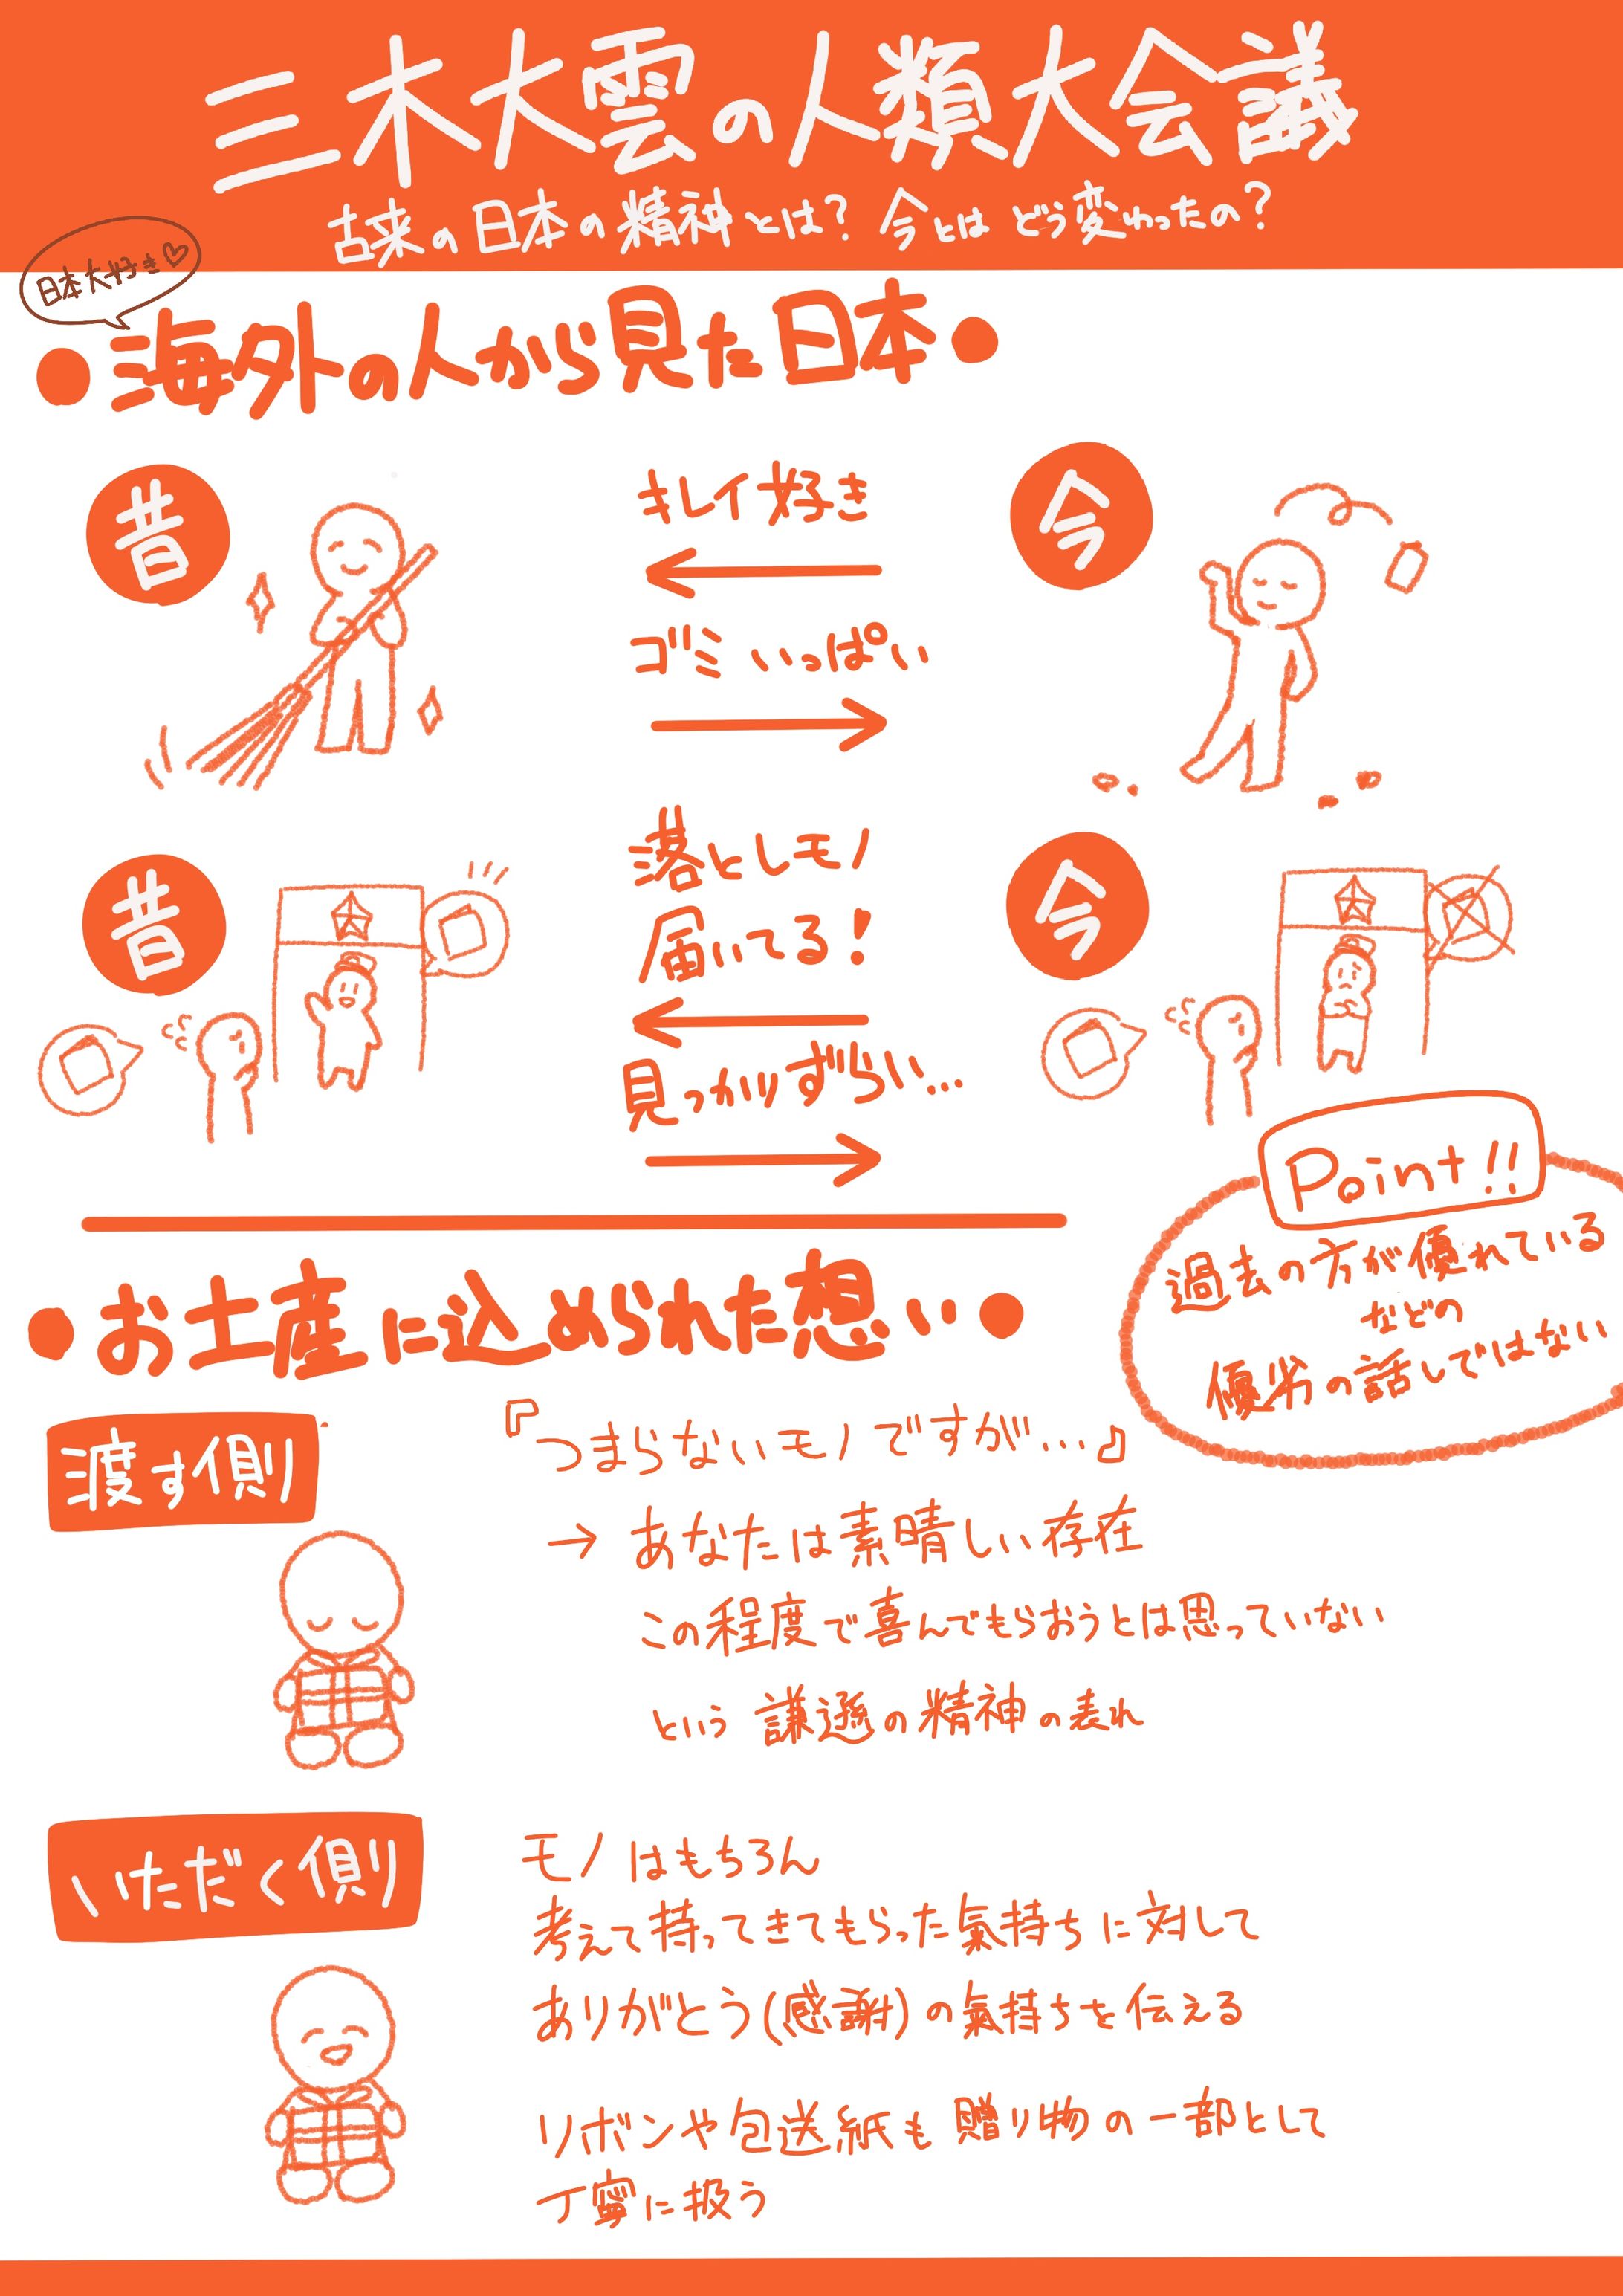 三木大雲の人類大会議
古来の日本の精神とは? 今とはどう変わったの?
日本大好き♡
●海外の人から見た日本●
昔
キレイ好き
ゴミいっぱい
今
昔
落としモノ
届いてる!
見つかりずらい…
今
Point!!
過去の方が優れている
などの
優劣の話しではない
●お土産に込められた想い●
渡す側
『つまらないモノですが…』
→ あなたは素晴しい存在
この程度で喜んでもらおうとは思っていない
という 謙遜の精神の表れ
いただく側
モノはもちろん
考えて持ってきてもらった氣持ちに対して
ありがとう(感謝)の氣持ちを伝える
リボンや包送紙も贈り物の一部として
丁寧に扱う